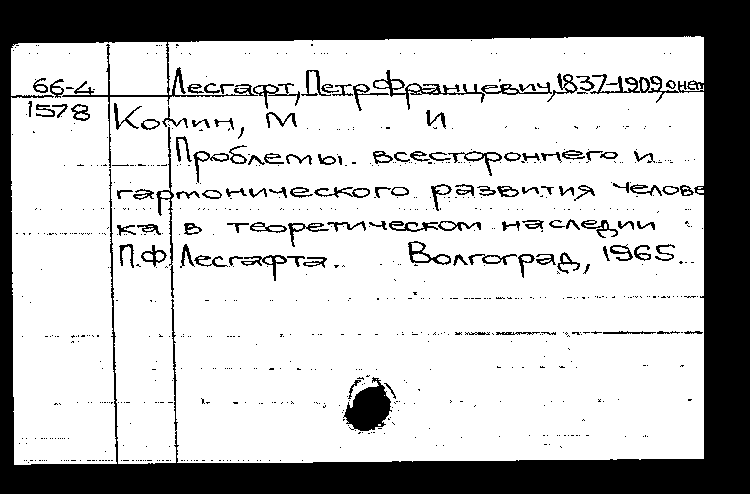 66-4 Лесгафт, Петр Францевич, 1837-1909, о нем
1578 Комин, М И
Проблемы всестороннего и
гармонического развития челове
ка в теоретическом наследии
П.Ф. Лесгафта. Волгоград, 1965.